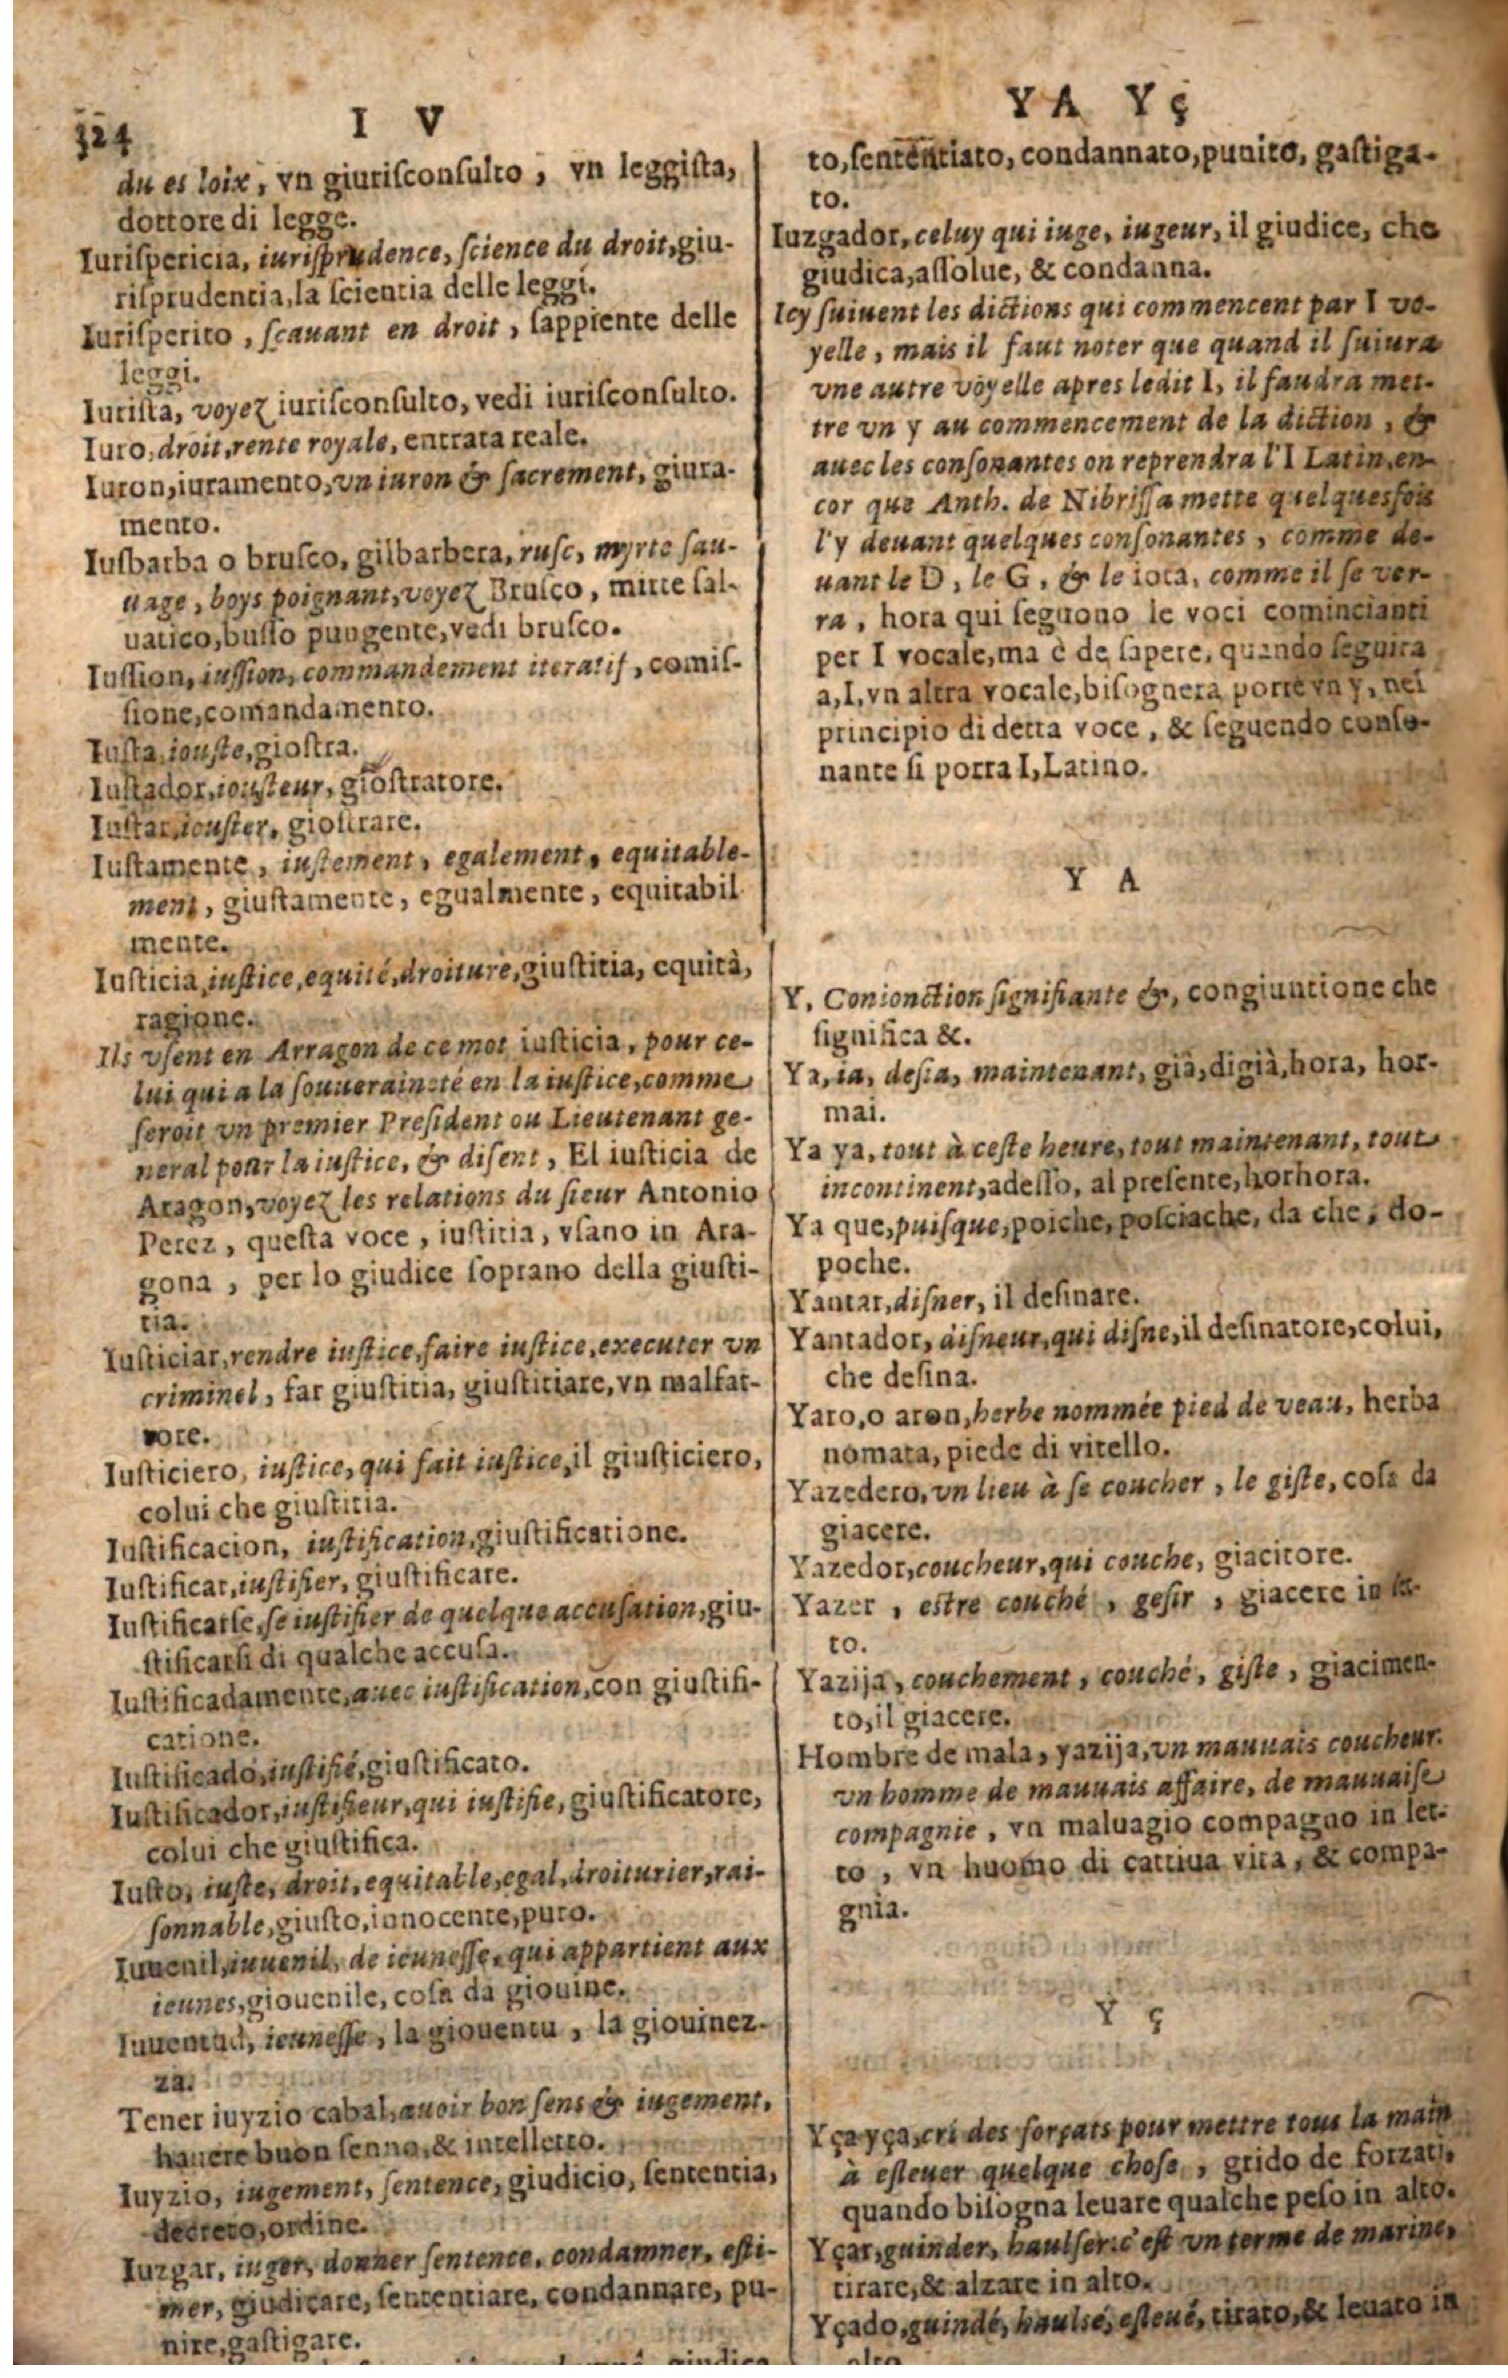 324
I V
du es loix, vn giurisconsulto, vn leggista,
dottore di legge.
Iurispericia, iurisprudence, science du droit, giu-
risprudentia, la scientia delle leggi.
Iurisperito, sçauant en droit, sappiente delle
leggi.
Iurista, voyez iurisconsulto, vedi iurisconsulto.
Iuro, droit, rente royale, entrata reale.
Iuron, iuramento, vn iuron & sacrement, giura-
mento.
Iusbarba o brusco, gilbarbera, rusc, myrte sau-
uage, boys poignant, voyez Brusco, mirte sal-
uatico, busso pungente, vedi brusco.
Iussion, iussion, commandement iteratif, comis-
sione, comandamento.
Iusta, iouste, giostra.
Iustador, iousteur, giostratore.
Iustar, iouster, giostrare.
Iustamente, iustement, egalement, equitable-
ment, giustamente, egualmente, equitabil
mente.
Iusticia, iustice, equité, droiture, giustitia, equità,
ragione.
Ils vsent en Arragon de ce mot iusticia, pour ce-
lui qui a la souueraineté en la iustice, comme
seroit vn premier President ou Lieutenant ge-
neral pour la iustice, & disent, El iusticia de
Aragon, voyez les relations du sieur Antonio
Perez, questa voce, iustitia, vsano in Ara-
gona, per lo giudice soprano della giusti-
tia.
Iusticiar, rendre iustice, faire iustice, executer vn
criminel, far giustitia, giustitiare, vn malfat-
tore.
Iusticiero, iustice, qui fait iustice, il giusticiero,
colui che giustitia.
Iustificacion, iustification, giustificatione.
Iustificar, iustifier, giustificare.
Iustificarse, se iustifier de quelque accusation, giu-
stificarsi di qualche accusa.
Iustificadamente, auec iustification, con giustifi-
catione.
Iustificado, iustifié, giustificato.
Iustificador, iustifieur, qui iustifie, giustificatore,
colui che giustifica.
Iusto, iuste, droit, equitable, egal, droiturier, rai-
sonnable, giusto, innocente, puro.
Iuuenil, iuuenil, de ieunesse, qui appartient aux
ieunes, giouenile, cosa da giouine.
Iuuentud, ieunesse, la giouentu, la giouinez-
za.
Tener iuyzio cabal, auoir bon sens & iugement,
hauere buon senno, & intelletto.
Iuyzio, iugement, sentence, giudicio, sententia,
decreto, ordine.
Iuzgar, iuger, donner sentence, condamner, esti-
mer, giudicare, sententiare, condannare, pu-
nire, gastigare.
giudica
YA Yç
to, sententiato, condannato, punito, gastiga-
to.
Iuzgador, celuy qui iuge, iugeur, il giudice, che
giudica, assolue, & condanna.
Icy suiuent les dictions qui commencent par I vo-
yelle, mais il faut noter que quand il suiura
vne autre voyelle apres ledit I, il faudra met-
tre vn y au commencement de la diction, &
auec les consonantes on reprendra l'I Latin, en-
cor que Anth. de Nibrissa mette quelquesfois
l'y deuant quelques consonantes, comme de-
uant le D, le G, & le iota, comme il se ver-
ra, hora qui seguono le voci comincianti
per I vocale, ma è de sapere, quando seguira
a, I, vn altra vocale, bisognera porre vn y, nel
principio di detta voce, & seguendo conso-
nante si porra I, Latino.
Y A
Y, Conionction signifiante &, congiuntione che
significa &.
Ya, ia, desia, maintenant, già, digià, hora, hor-
mai.
Ya ya, tout à ceste heure, tout maintenant, tout
incontinent, adesso, al presente, horhora.
Ya que, puisque, poiche, posciache, da che, do-
poche.
Yantar, disner, il desinare.
Yantador, disneur, qui disne, il desinatore, colui,
che desina.
Yaro, o aron, herbe nommée pied de veau, herba
nomata, piede di vitello.
Yazedero, vn lieu à se coucher, le giste, cosa da
giacere.
Yazedor, coucheur, qui couche, giacitore.
Yazer, estre couché, gesir, giacere in let-
to.
Yazija, couchement, couché, giste, giacimen-
to, il giacere.
Hombre de mala, yazija, vn mauuais coucheur.
vn homme de mauuais affaire, de mauuaise
compagnie, vn maluagio compagno in let-
to, vn huomo di cattiua vita, & compa-
gnia.
Y ç
Yça yça, cri des forçats pour mettre tous la main
à esleuer quelque chose, grido de forzati,
quando bisogna leuare qualche peso in alto.
Yçar, guinder, haulser. c'est vn terme de marine,
tirare, & alzare in alto.
Yçado, guindé, haulsé, esleué, tirato, & leuato in
alto